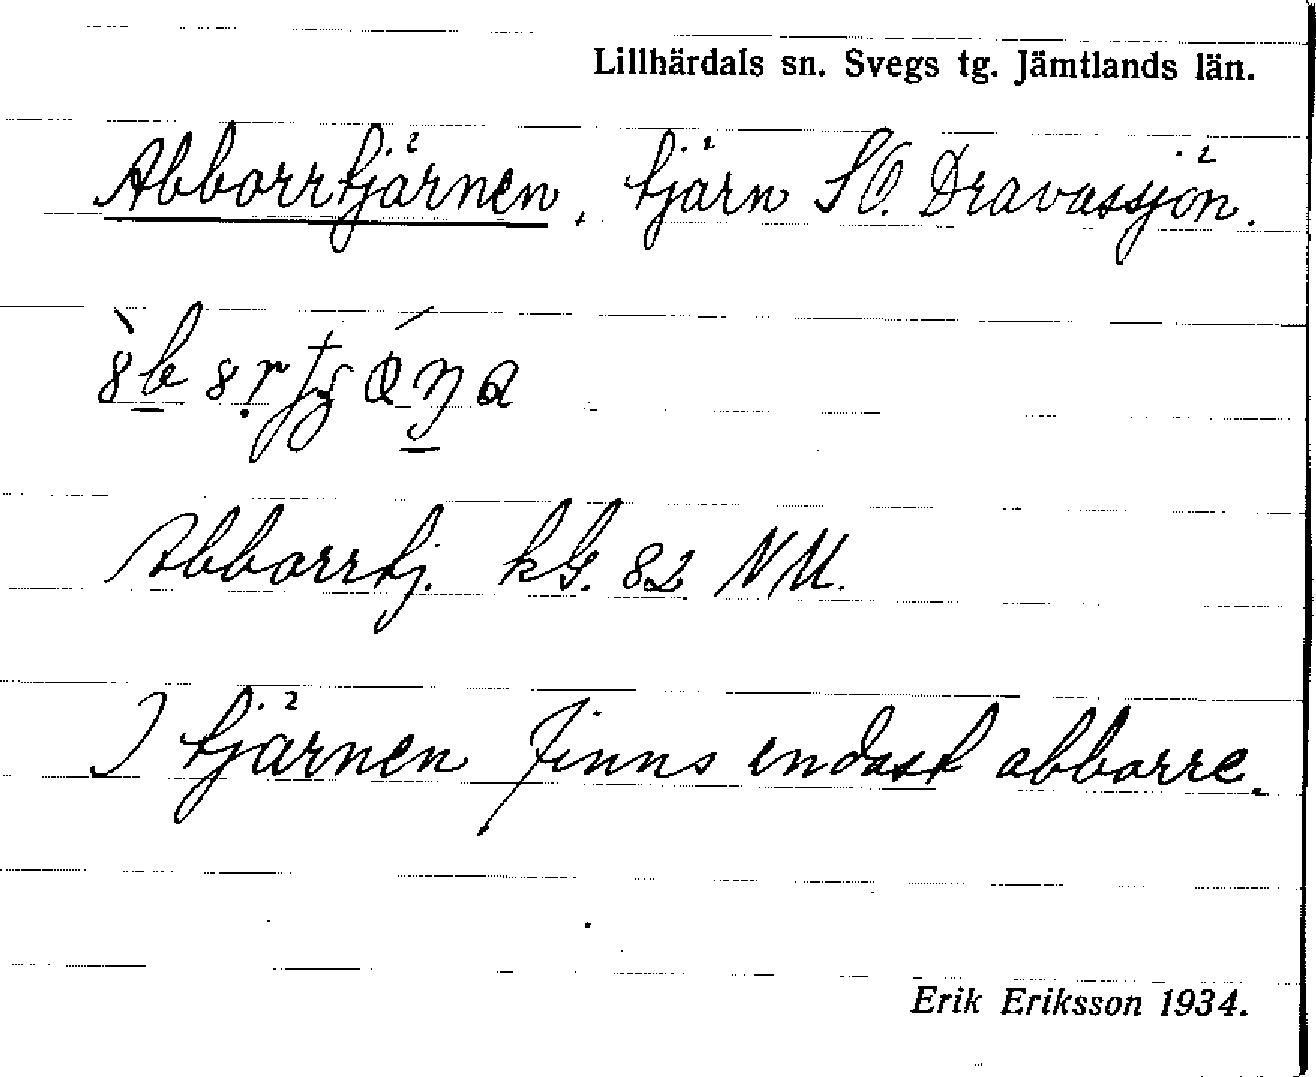 Lillhärdals sn. Svegs tg. Jämtlands län.
Abborrtjärnen, tjärn SO. Dravassjön.
Abborrtj. kG. 82 NU.
I tjärnen finns endast abborre.
Erik Eriksson 1934.